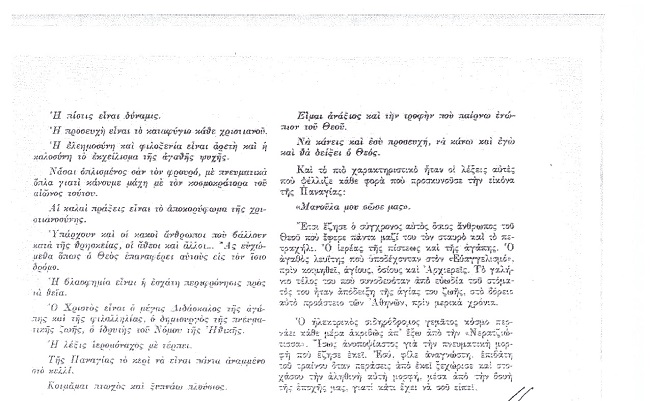 Ἡ πίστις εἶναι δύναμις.
Ἡ προσευχὴ εἶναι τὸ καταφύγιο κάθε χριστιανοῦ.
Ἡ ἐλεημοσύνη καὶ φιλοξενία εἶναι ἀρετὴ καὶ ἡ
καλοσύνη τὸ ἐκχείλισμα τῆς ἀγαθῆς ψυχῆς.
Νἆσαι ὁπλισμένος σὰν τὸν φρουρό, μὲ πνευματικὰ
ὅπλα γιατὶ κάνουμε μάχη μὲ τὸν κοσμοκράτορα τοῦ
αἰῶνος τούτου.
Αἱ καλαὶ πράξεις εἶναι τὸ ἀποκορύφωμα τῆς χρι-
στιανοσύνης.
Ὑπάρχουν καὶ οἱ κακοὶ ἄνθρωποι ποὺ βάλλουν
κατὰ τῆς θρησκείας, οἱ ἄθεοι καὶ ἄλλοι... Ἂς εὐχό-
μεθα ὅπως ὁ Θεὸς ἐπαναφέρει αὐτοὺς εἰς τὸν ἴσιο
δρόμο.
Ἡ βλασφημία εἶναι ἡ ἐσχάτη περιφρόνησις πρὸς
τὰ θεῖα.
Ὁ Χριστὸς εἶναι ὁ μέγας Διδάσκαλος τῆς ἀγά-
πης καὶ τῆς φιλαλληλίας, ὁ δημιουργὸς τῆς πνευμα-
τικῆς ζωῆς, ὁ ἱδρυτὴς τοῦ Νόμου τῆς Ἠθικῆς.
Ἡ λέξις ἱερομόναχος μὲ τέρπει.
Τῆς Παναγίας τὸ κερὶ νὰ εἶναι πάντα ἀναμμένο
στὸ κελλί.
Κοιμᾶμαι πτωχὸς καὶ ξυπνάω πλούσιος.
Εἶμαι ἀνάξιος καὶ τὴν τροφὴν ποὺ παίρνω ἐνώ-
πιον τοῦ Θεοῦ.
Νὰ κάνεις καὶ ἐσὺ προσευχή, νὰ κάνω καὶ ἐγὼ
καὶ θὰ δείξει ὁ Θεός.
Καὶ τὸ πιὸ χαρακτηριστικὸ ἦταν οἱ λέξεις αὐτὲς
ποὺ ψέλλιζε κάθε φορὰ ποὺ προσκυνοῦσε τὴν εἰκόνα
τῆς Παναγίας:
«Μανοῦλα μου σῶσε μας».
Ἔτσι ἔζησε ὁ σύγχρονος αὐτὸς ὅσιος ἄνθρωπος τοῦ
Θεοῦ ποὺ ἔφερε πάντα μαζί του τὸν σταυρὸ καὶ τὸ πε-
τραχήλι. Ὁ ἱερέας τῆς πίστεως καὶ τῆς ἀγάπης. Ὁ
ἀγαθὸς λευίτης ποὺ ὑποδέχονταν στὸν «Εὐαγγελισμό»,
πρὶν κοιμηθεῖ, ἁγίους, ὁσίους καὶ Ἀρχιερεῖς. Τὸ γαλή-
νιο τέλος του ποὺ συνοδευόταν ἀπὸ εὐωδία τοῦ στόμα-
τός του ἦταν ἀπόδειξη τῆς ἁγίας του ζωῆς, στὸ βόρειο
αὐτὸ προάστειο τῶν Ἀθηνῶν, πρὶν μερικὰ χρόνια.
Ὁ ἠλεκτρικὸς σιδηρόδρομος γεμᾶτος κόσμο περ-
νάει κάθε μέρα ἀκριβῶς ἀπ' ἔξω ἀπὸ τὴν «Νερατζιώ-
τισσα». Ἴσως ἀνυποψίαστος γιὰ τὴν πνευματικὴ μορ-
φὴ ποὺ ἔζησε ἐκεῖ. Ἐσύ, φίλε ἀναγνώστη, ἐπιβάτη
τοῦ τραίνου ὅταν περάσεις ἀπὸ ἐκεῖ ξεχώρισε καὶ στο-
χάσου τὴν ἀληθινὴ αὐτὴ μορφή, μέσα ἀπὸ τὴν βουὴ
τῆς ἐποχῆς μας, γιατὶ κάτι ἔχει νὰ σοῦ εἰπεῖ.